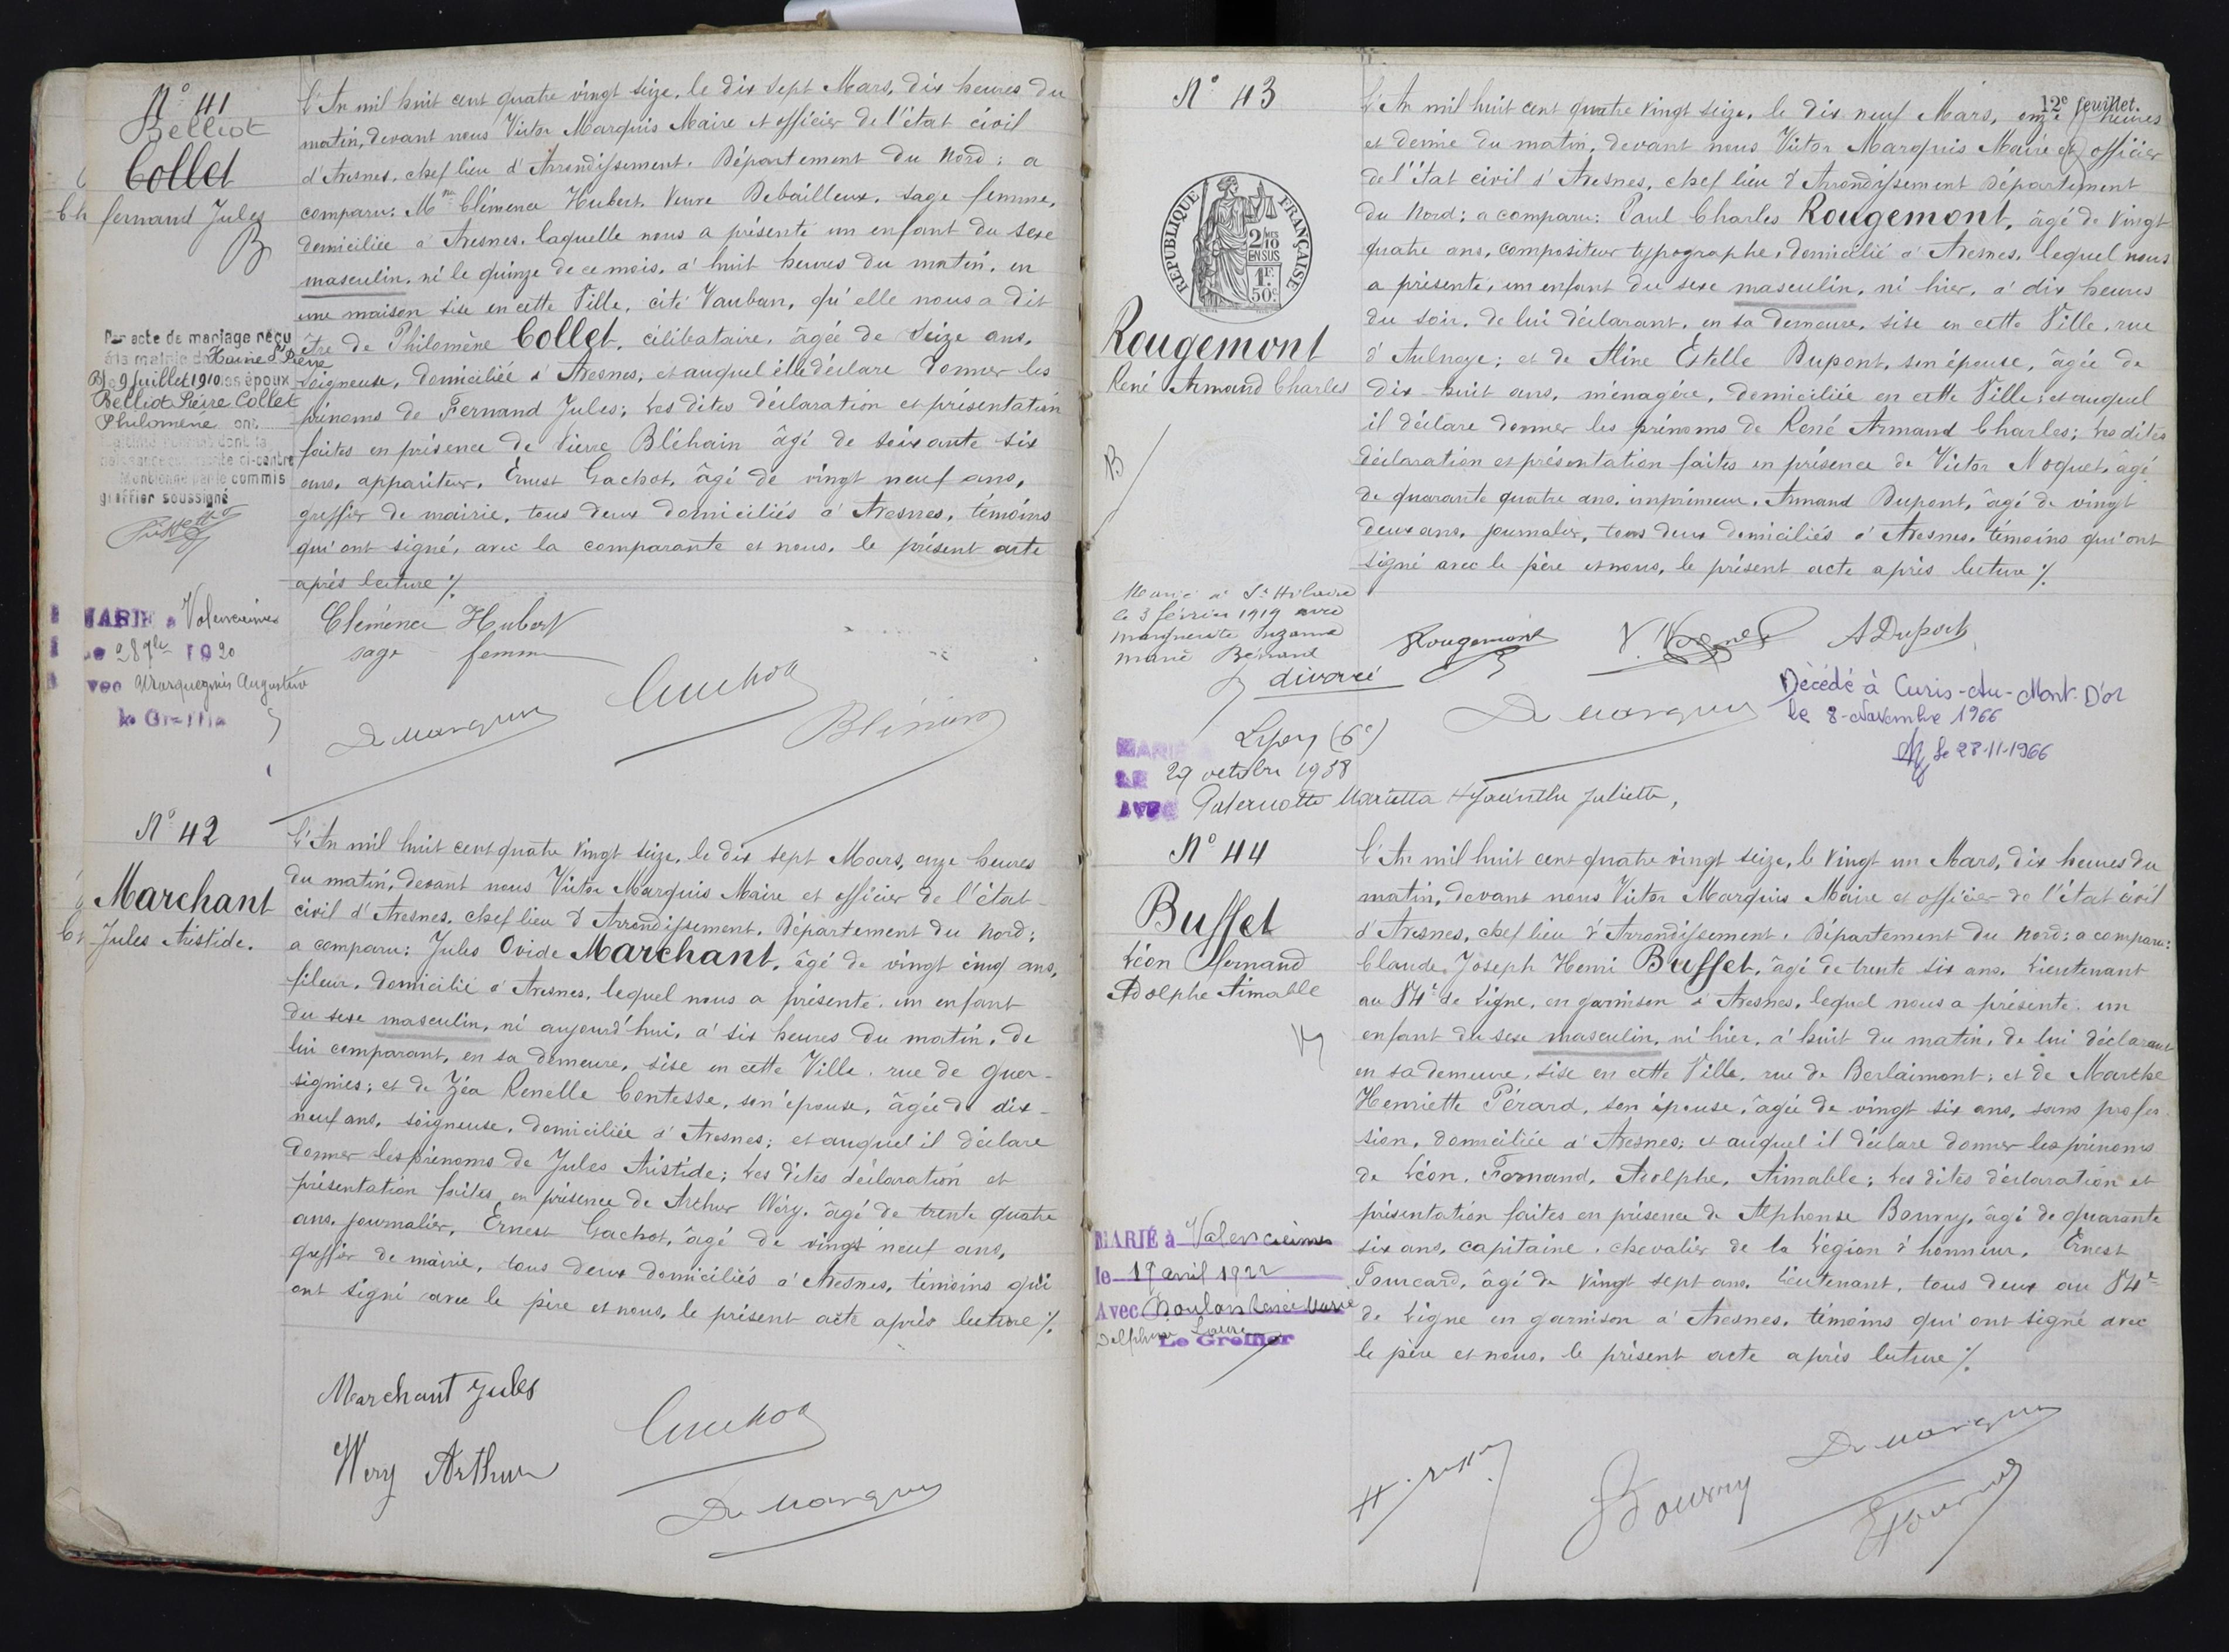 N° 41
Belliot
Collet
fernand Jules
L'An mil huit cent quatre vingt seize, le dix sept Mars, dix heures du
matin, devant nous Victor Marquis Maire et officier de l'état civil
d'Avesnes, chef lieu d'Arrondissement, Département du Nord: a
comparu: Mme Clémence Hubert, Veuve Debailleux, sage femme,
domiciliée à Avesnes, laquelle nous a présenté un enfant du sexe
masculin, né le quinze de ce mois, à huit heures du matin, en
une maison sise en cette Ville, cité Vauban, qu'elle nous a dit
être de Philomène Collet, célibataire, âgée de seize ans,
soigneuse, domiciliée à Avesnes; et auquel elle déclare donner les
prénoms de Fernand Jules; Les dites déclaration et présentation
faites en présence de Pierre Bléhain âgé de soixante six
ans, appariteur, Ernest Gachot, âgé de vingt neuf ans,
greffier de mairie, tous deux domiciliés à Avesnes, témoins
qui ont signé, avec la comparante et nous, le présent acte
après lecture %
Par acte de mariage reçu
à la mairie de Haine St Pierre
le 9 Juillet 1910 les époux
Belliot Pierre Collet
Philomène ont
dont la
naissance est ci-contre
par le commis
greffier soussigné
MARIÉ à Valenciennes
Le 28 1920
avec Augustine
le Greffier
Clémence Hubert
sage femme
Gachot
Dr Marquis
N° 42
Marchant
Jules Aristide.
L'An mil huit cent quatre vingt seize, le dix sept Mars, onze heures
du matin, devant nous Victor Marquis Maire et officier de l'état
civil d'Avesnes, chef lieu d'Arrondissement, Département du Nord;
a comparu: Jules Ovide Marchant, âgé de vingt cinq ans,
fileur, domicilié à Avesnes, lequel nous a présenté un enfant
du sexe masculin, né aujourd'hui, à six heures du matin, de
lui comparant, en sa demeure, sise en cette Ville, rue de Guer-
signies; et de Zéa Renelle Contesse, son épouse, âgée de dix-
neuf ans, soigneuse, domiciliée à Avesnes; et auquel il déclare
donner les prénoms de Jules Aristide; Les dites déclaration et
présentation faites en présence de Arthur Wéry, âgé de trente quatre
ans, journalier, Ernest Gachot, âgé de vingt neuf ans,
greffier de mairie, tous deux domiciliés à Avesnes, témoins qui
ont signé avec le père et nous, le présent acte après lecture %
Marchant Jules
Gachot
Wery Arthur
Dr Marquis
12e feuillet.
N° 43
RÉPUBLIQUE FRANÇAISE
2/10 EN SUS
1F. 50c
Rougemont
René Armand Charles
L'An mil huit cent quatre vingt seize, le dix neuf Mars, onze heures
et demie du matin, devant nous Victor Marquis Maire et officier
de l'état civil d'Avesnes, chef lieu d'Arrondissement Département
du Nord; a comparu: Paul Charles Rougemont, âgé de vingt
quatre ans, compositeur typographe, domicilié à Avesnes, lequel nous
a présenté, un enfant du sexe masculin, né hier, à dix heures
du soir, de lui déclarant, en sa demeure, sise en cette Ville, rue
d'Aulnoye; et de Aline Estelle Dupont, son épouse, âgée de
dix-huit ans, ménagère, domiciliée en cette Ville; et auquel
il déclare donner les prénoms de René Armand Charles; Les dites
déclaration et présentation faites en présence de Victor Noquet, âgé
de quarante quatre ans, imprimeur, Armand Dupont, âgé de vingt
deux ans, journalier, tous deux domiciliés à Avesnes, témoins qui ont
signé avec le père et nous, le présent acte après lecture %
Marié à St Hilaire
le 3 février 1919 avec
Marguerite Suzanne
Marie
divorcé
Rougemont
A Dupont
Dr Marquis
Décédé à Curis-Au-Mont-D'or
le 8-Novembre 1966
le 28-11-1966
MARIÉ Lyon (6e)
LE 29 octobre 1938
AVEC Paternotte Marietta Hyacinthe Juliette,
N° 44
Buffet
Léon Fernand
Adolphe Aimable
L'An mil huit cent quatre vingt seize, le vingt un Mars, dix heures du
matin, devant nous Victor Marquis Maire et officier de l'état civil
d'Avesnes, chef lieu d'Arrondissement, Département du Nord; a comparu:
Claude Joseph Henri Buffet, âgé de trente six ans, Lieutenant
au 84e de Ligne, en garnison à Avesnes, lequel nous a présenté un
enfant du sexe masculin, né hier, à huit du matin, de lui déclarant
en sa demeure, sise en cette Ville, rue de Berlaimont; et de Marthe
Henriette Pérard, son épouse, âgée de vingt six ans, sans profes-
sion, domiciliée à Avesnes; et auquel il déclare donner les prénoms
de Léon, Fernand, Adolphe, Aimable; Les dites déclaration et
présentation faites en présence de Alphonse Bourry, âgé de quarante
six ans, capitaine, chevalier de la Légion d'honneur, Ernest
Fourcard, âgé de vingt sept ans, lieutenant, tous deux au 84e
de Ligne en garnison à Avesnes, témoins qui ont signé avec
le père et nous, le présent acte après lecture %
MARIÉ à Valenciennes
le 19 avril 1922
Avec Moulon Renée Marie
Delphine Laure
Le Greffier
Dr Marquis
Bourry